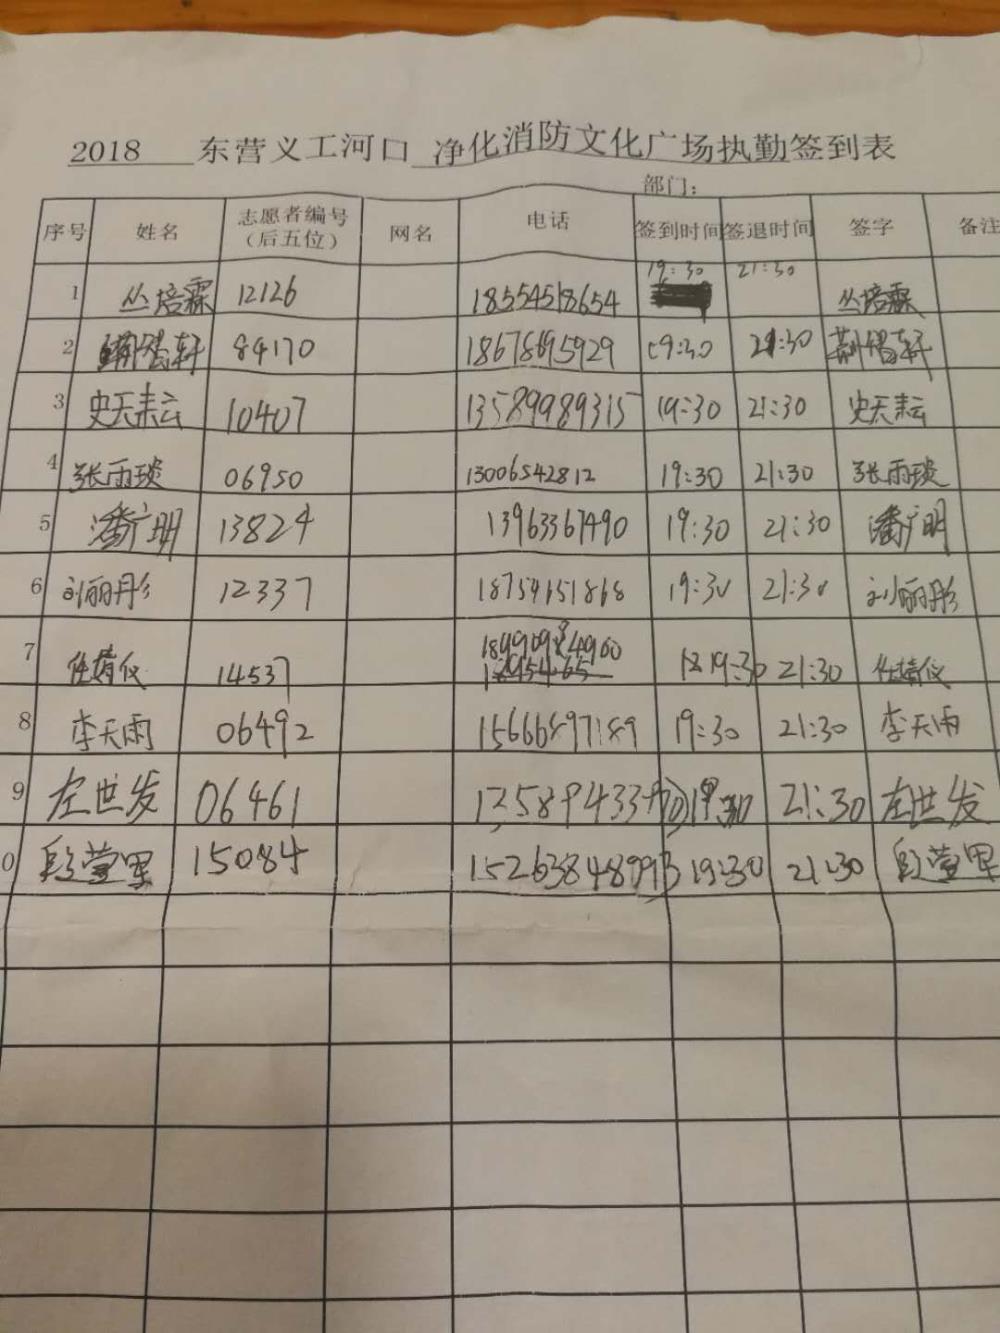 2018 东营义工河口 净化消防文化广场执勤签到表
部门：
序号 姓名 志愿者编号（后五位） 网名 电话 签到时间 签退时间 签字 备注
1 丛培霖 12126 18554518654 19:30 21:30 丛培霖
2 轩 84170 18678695929 19:30 21:30 轩
3 史天耘 10407 13589989315 19:30 21:30 史天耘
4 张雨琰 06950 13006542812 19:30 21:30 张雨琰
5 潘广明 13824 13963367490 19:30 21:30 潘广明
6 刘丽彤 12337 18754651868 19:30 21:30 刘丽彤
7 任婧仪 14537 19:30 21:30 任婧仪
8 李天雨 06492 15666897189 19:30 21:30 李天雨
9 左世发 06461 19:30 21:30 左世发
0 段萱 15084 19:30 21:30 段萱